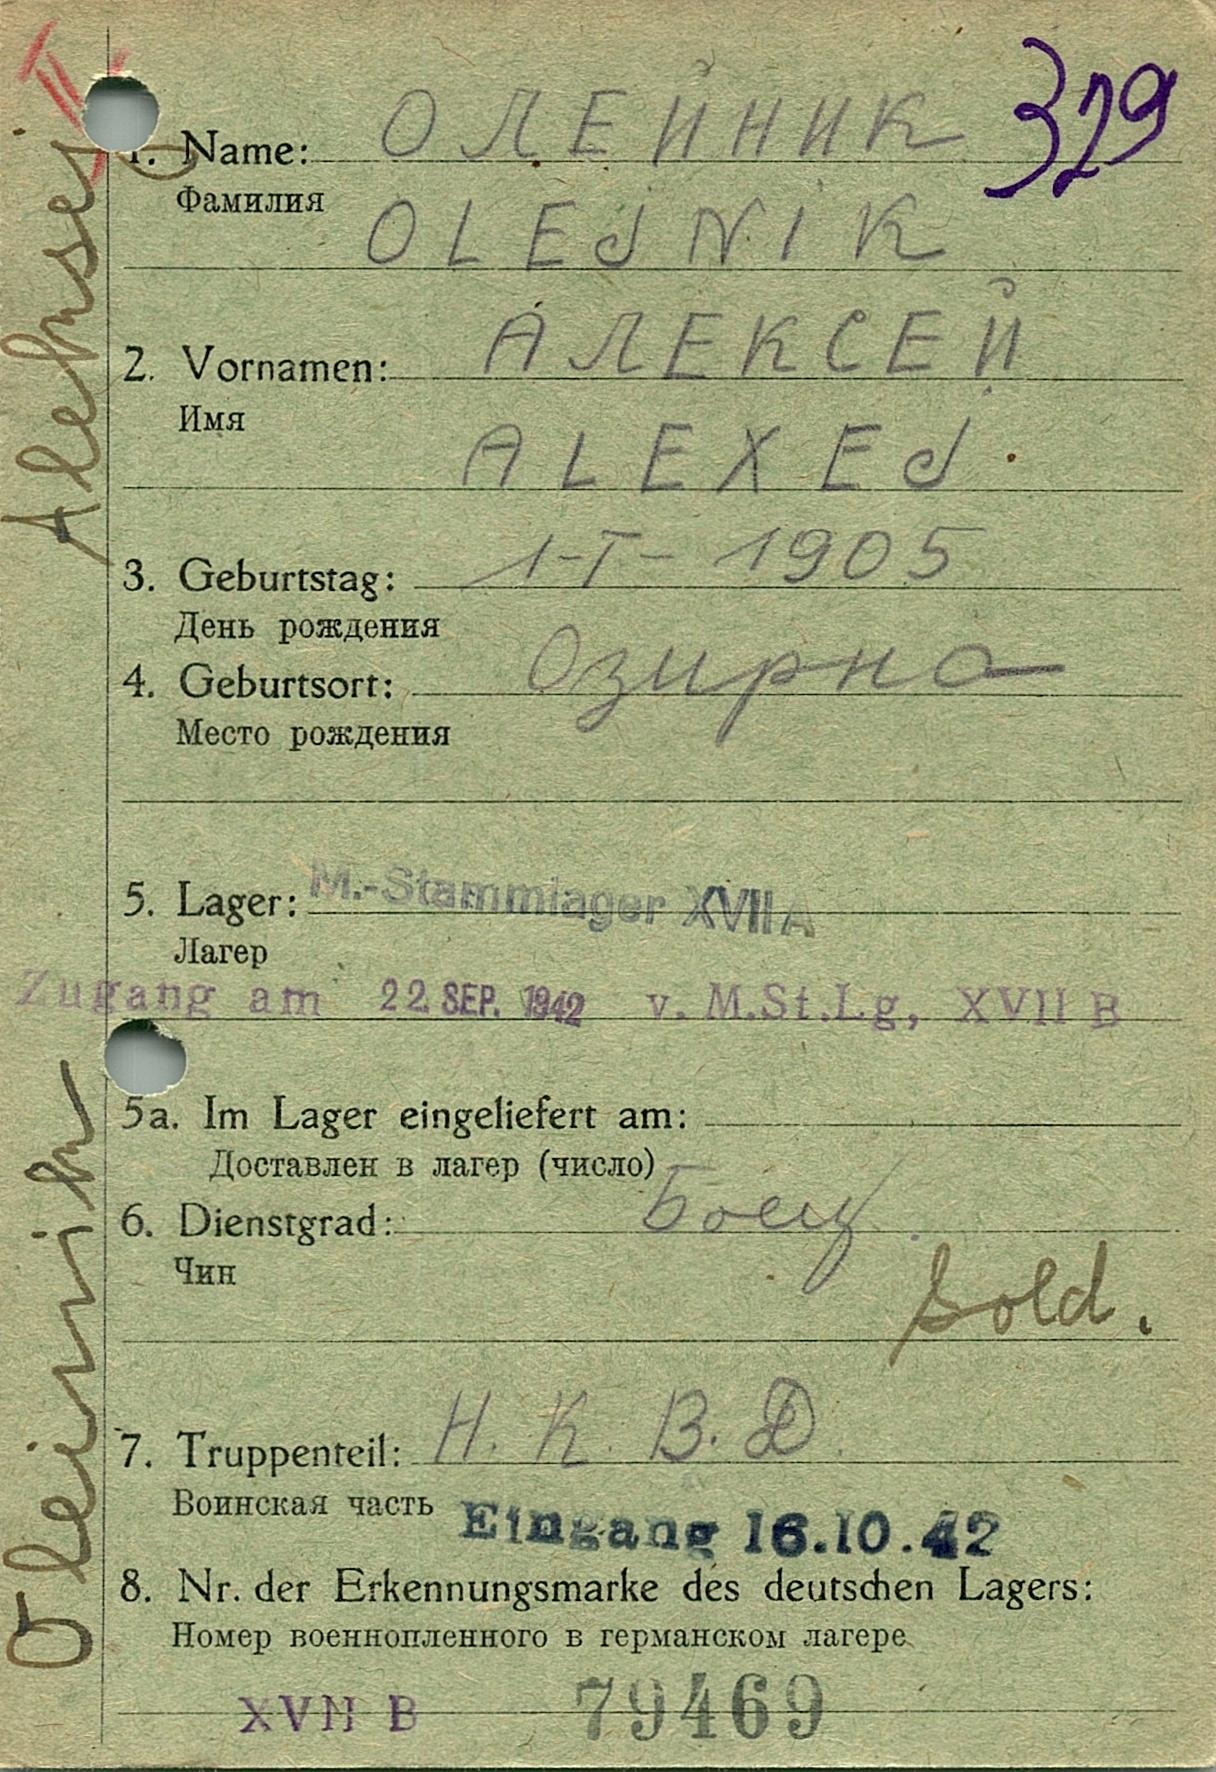 II
329
1. Name: ОЛЕЙНИК
Фамилия
OLEJNIK
2. Vornamen: АЛЕКСЕЙ
Имя
ALEXEJ
3. Geburtstag: 1-I-1905
День рождения
4. Geburtsort: Озирна
Место рождения
5. Lager: M.-Stammlager XVII A
Лагер
Zugang am 22 SEP. 1942 v. M.St.Lg, XVII B
5a. Im Lager eingeliefert am:
Доставлен в лагер (число)
6. Dienstgrad: Боец
Чин
Sold.
7. Truppenteil: Н. К. В. Д
Воинская часть
Eingang 16.10.42
8. Nr. der Erkennungsmarke des deutschen Lagers:
Номер военнопленного в германском лагере
XVII B 79469
Oleinik Aleksej